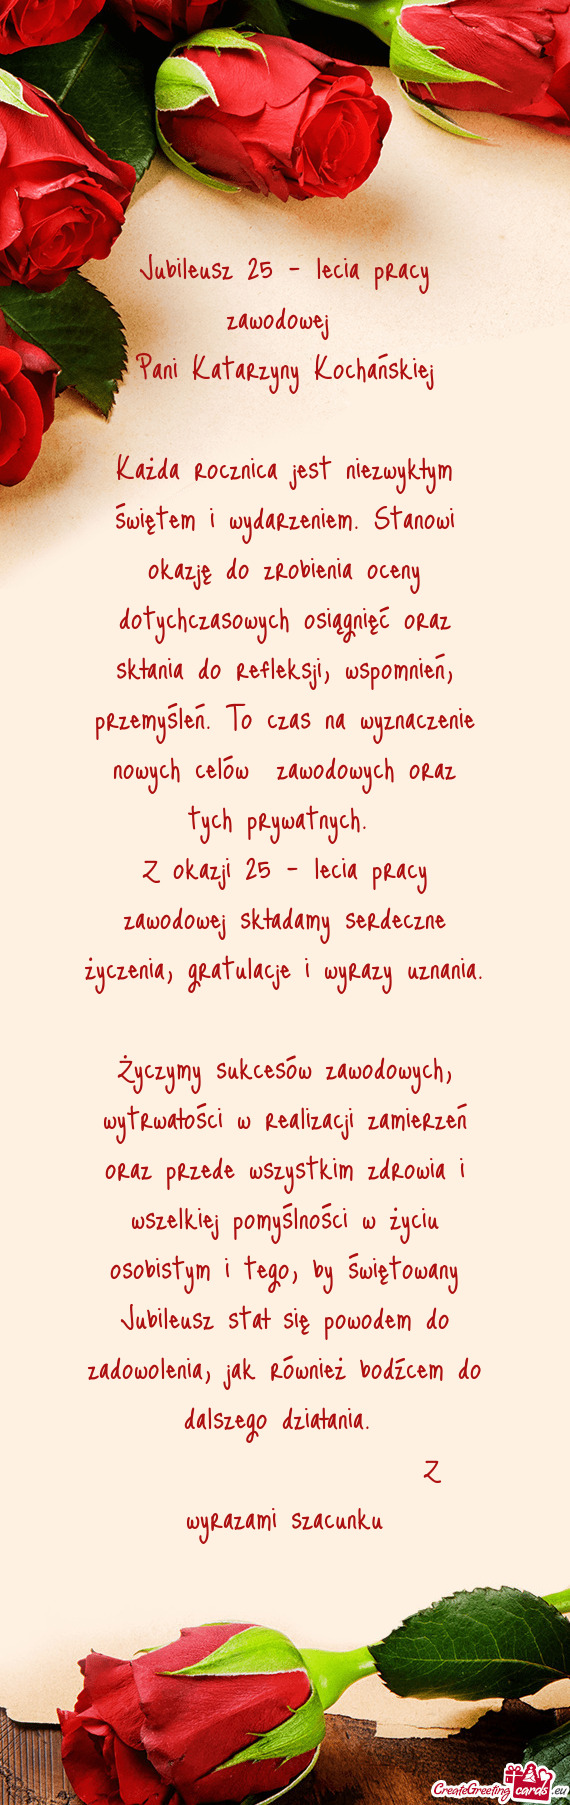 Jubileusz 25 - lecia pracy
zawodowej
Pani Katarzyny Kochańskiej
Każda rocznica jest niezwykłym
świętem i wydarzeniem. Stanowi
okazję do zrobienia oceny
dotychczasowych osiągnięć oraz
skłania do refleksji, wspomnień,
przemyśleń. To czas na wyznaczenie
nowych celów zawodowych oraz
tych prywatnych.
Z okazji 25 - lecia pracy
zawodowej składamy serdeczne
życzenia, gratulacje i wyrazy uznania.
Życzymy sukcesów zawodowych,
wytrwałości w realizacji zamierzeń
oraz przede wszystkim zdrowia i
wszelkiej pomyślności w życiu
osobistym i tego, by świętowany
Jubileusz stał się powodem do
zadowolenia, jak również bodźcem do
dalszego działania.
Z
wyrazami szacunku
CreateGreetingcards.eu